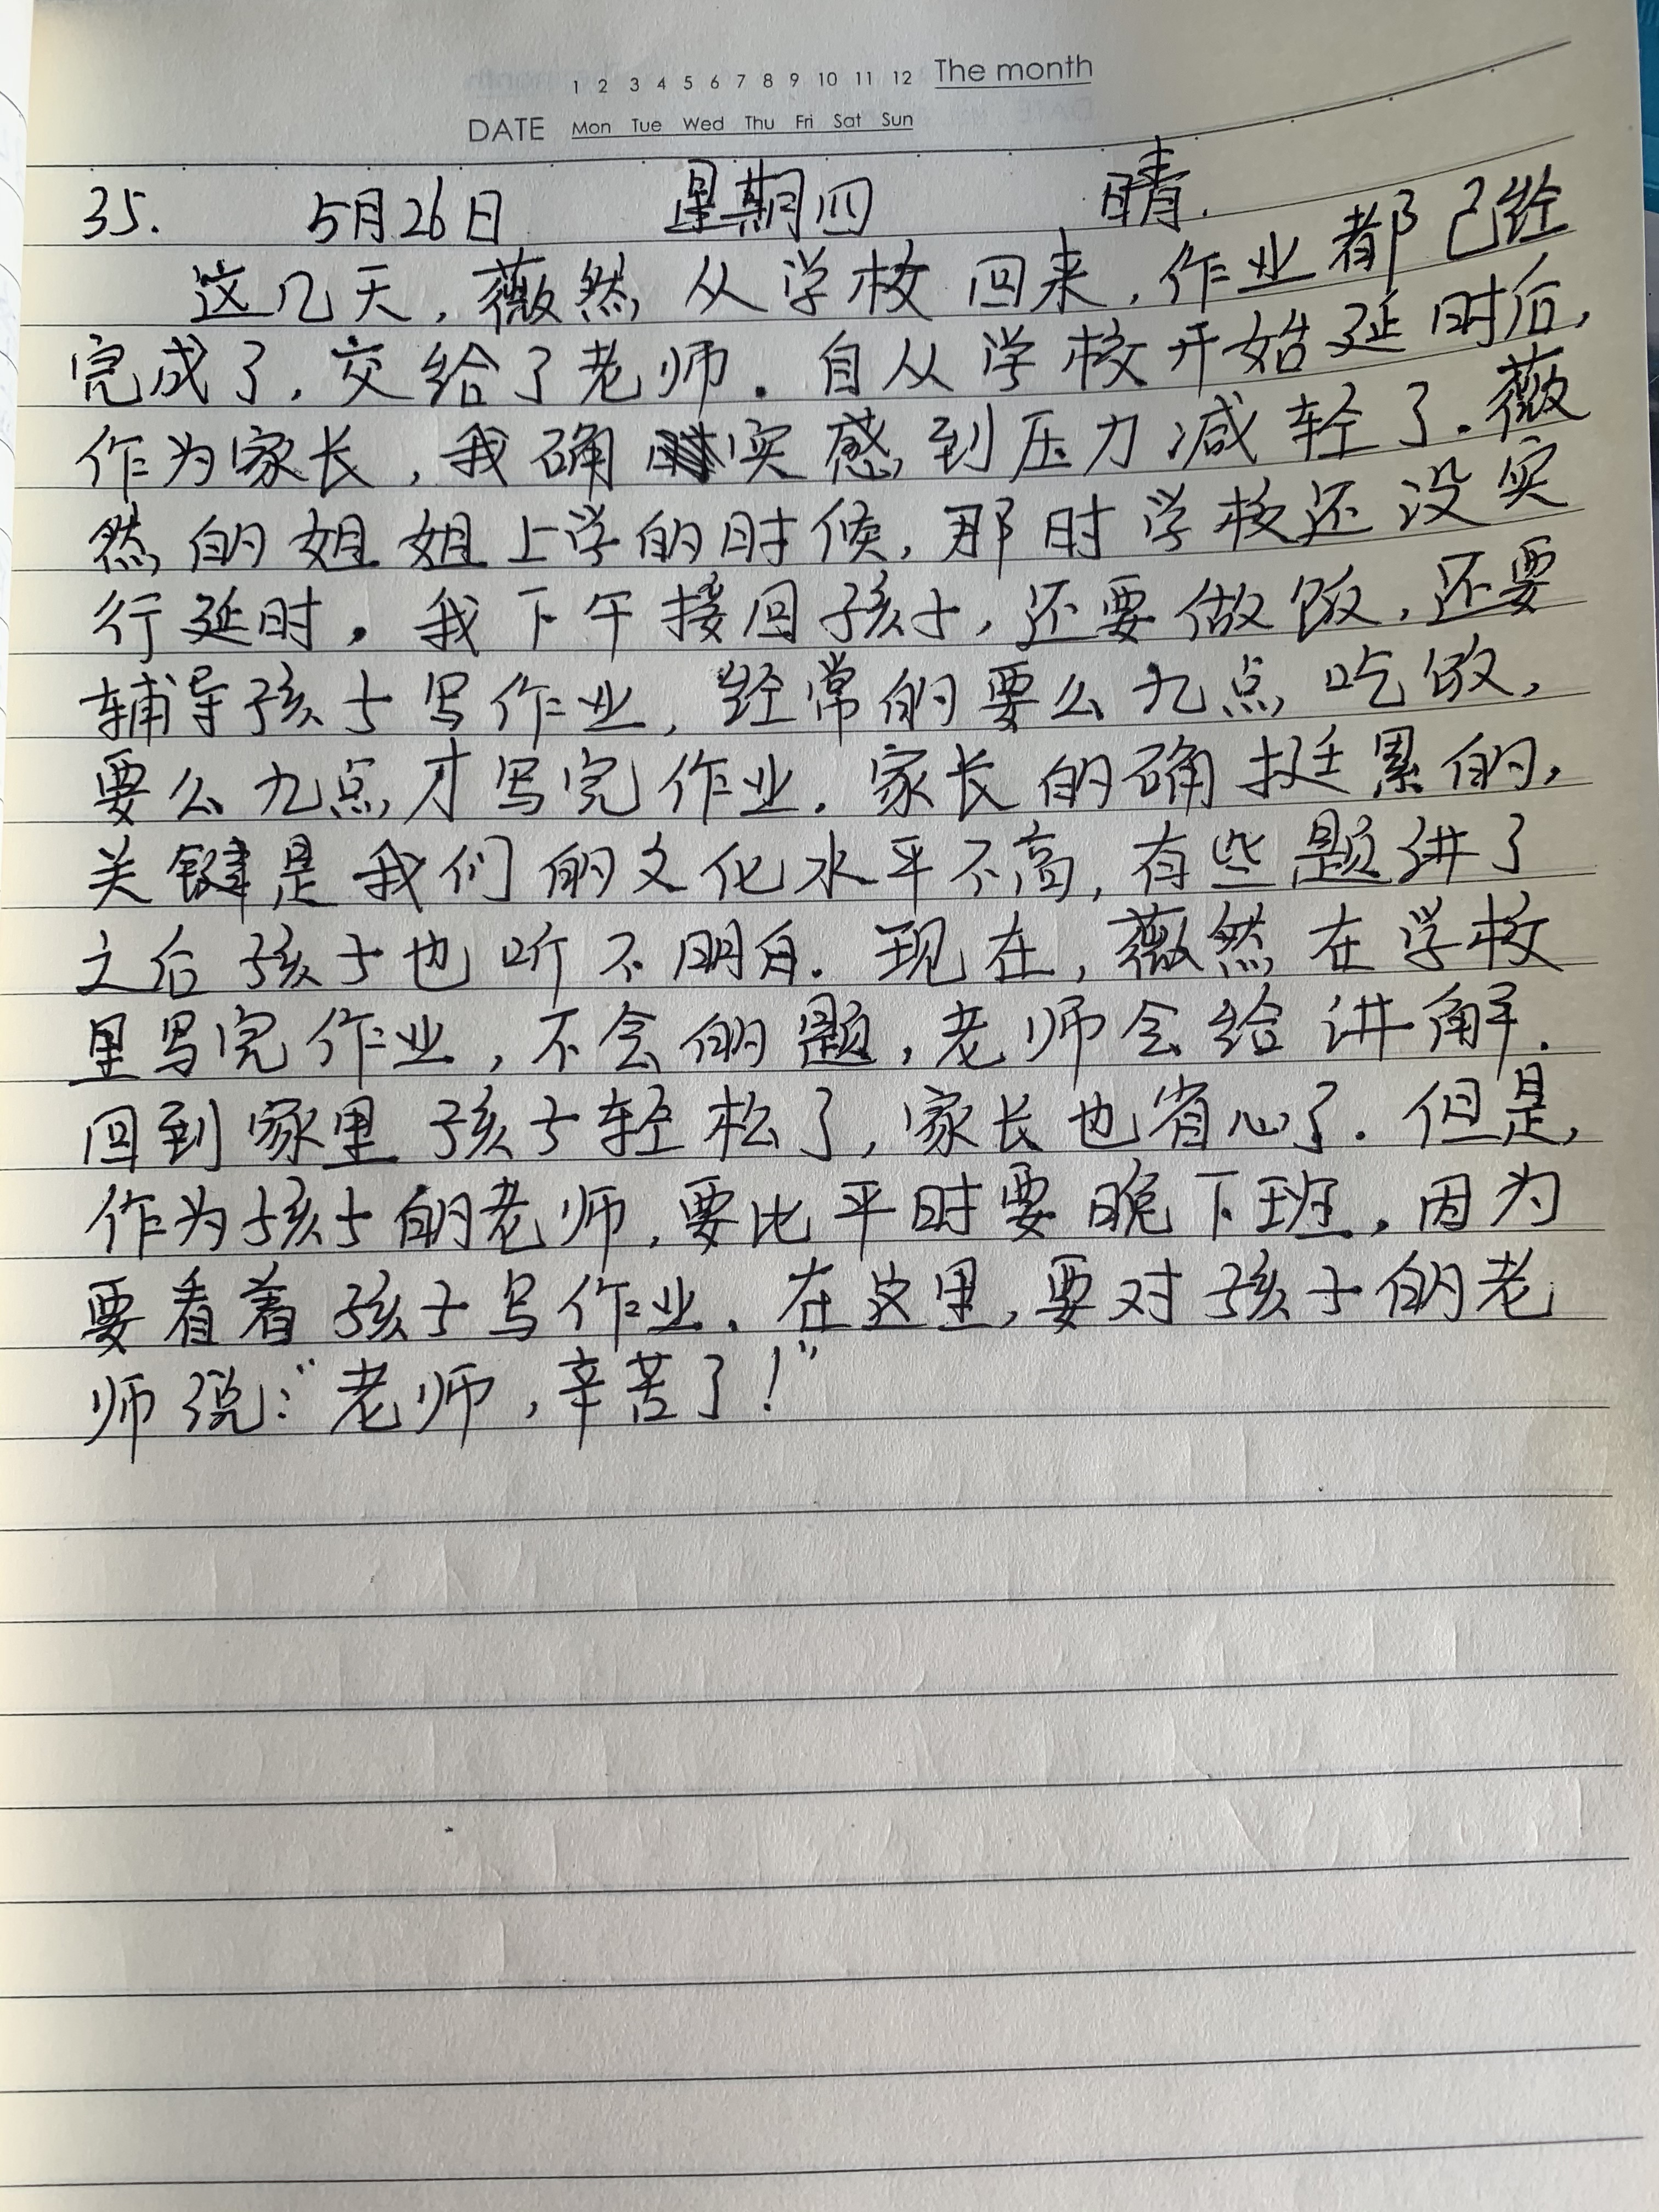 1 2 3 4 5 6 7 8 9 10 11 12 The month
DATE Mon Tue Wed Thu Fri Sat Sun
35. 5月26日 星期四 晴.
这几天,薇然从学校回来,作业都已经
完成了,交给了老师。自从学校开始延时后,
作为家长,我确实感到压力减轻了.薇
然的姐姐上学的时候,那时学校还没实
行延时。我下午接回孩子,还要做饭,还要
辅导孩子写作业,经常的要么九点吃饭,
要么九点才写完作业.家长的确挺累的,
关键是我们的文化水平不高,有些题讲了
之后孩子也听不明白.现在,薇然在学校
里写完作业,不会的题,老师会给讲解.
回到家里孩子轻松了,家长也省心了.但是,
作为孩子的老师,要比平时要晚下班,因为
要看着孩子写作业.在这里,要对孩子的老
师说:“老师,辛苦了!”